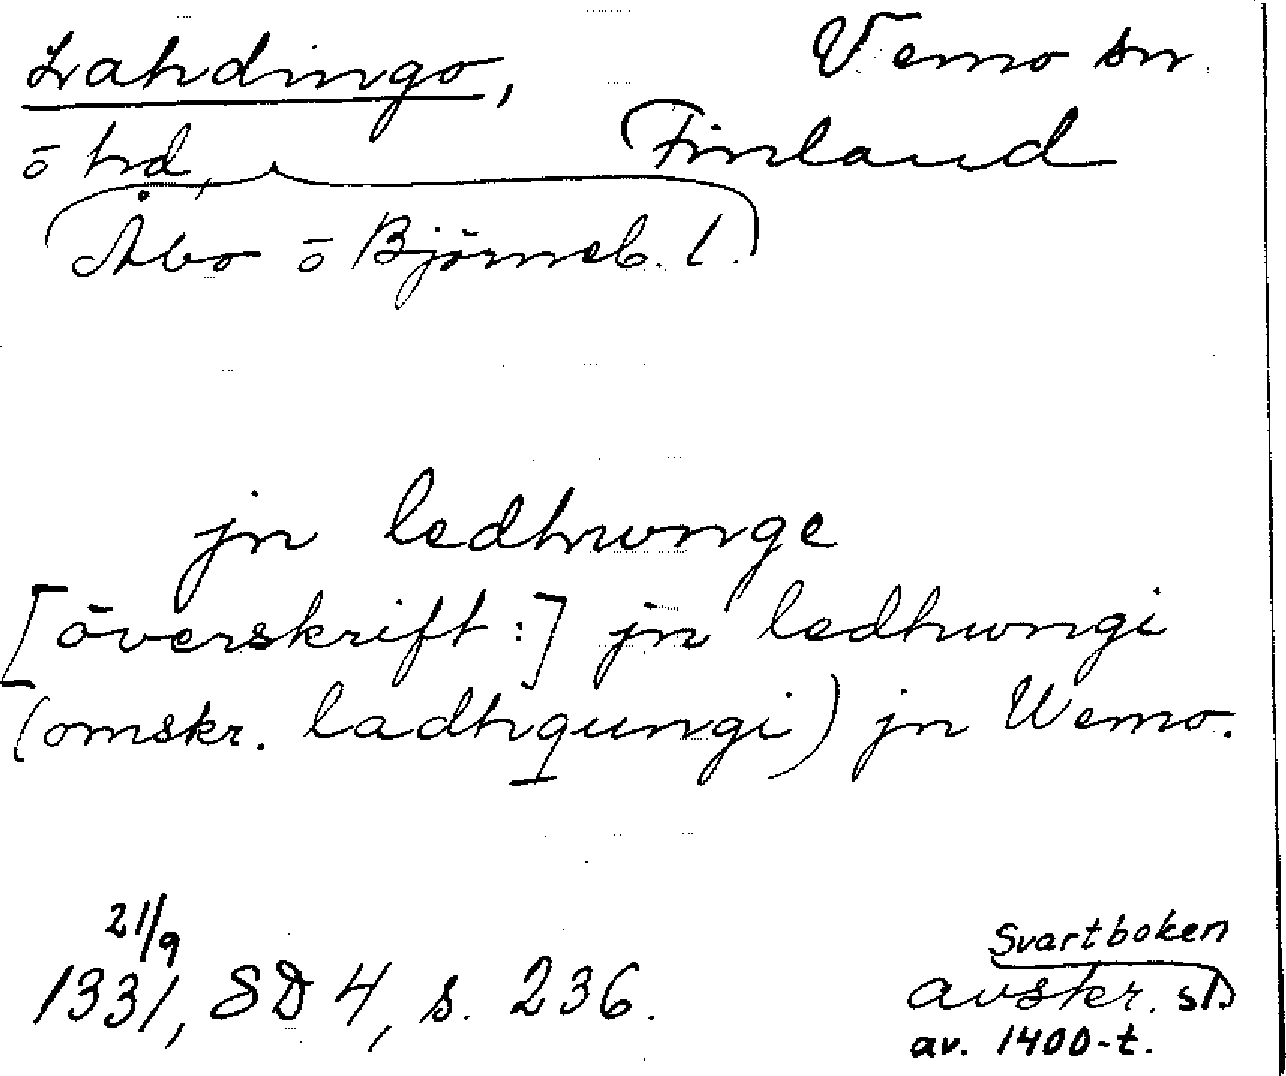 Lahdingo, Vemo sn.
ō hd, Finland
Åbo ō Björneb. l.
jn ledhwnge
[överskrift:] jn ledhwngi
(omskr. ladhgungi) jn Wemo.
21/9
1331, SD 4, s. 236.
Svartboken
avskr. sD
av. 1400-t.